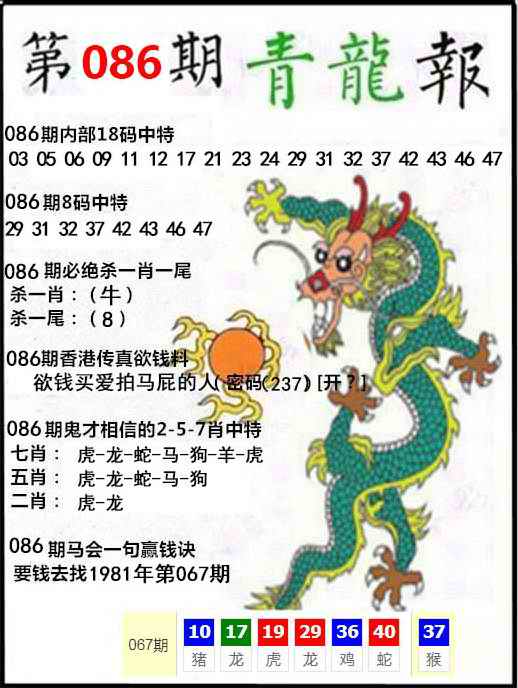 第086期 青龍報
086期内部18码中特
03 05 06 09 11 12 17 21 23 24 29 31 32 37 42 43 46 47
086期8码中特
29 31 32 37 42 43 46 47
086 期必绝杀一肖一尾
杀一肖：（牛）
杀一尾：（8）
086期香港传真欲钱料
欲钱买爱拍马屁的人(密码(237)[开？]
086期鬼才相信的2-5-7肖中特
七肖： 虎-龙-蛇-马-狗-羊-虎
五肖： 虎-龙-蛇-马-狗
二肖： 虎-龙
086 期马会一句赢钱诀
要钱去找1981年第067期
067期 10 17 19 29 36 40 37
猪 龙 虎 龙 鸡 蛇 猴